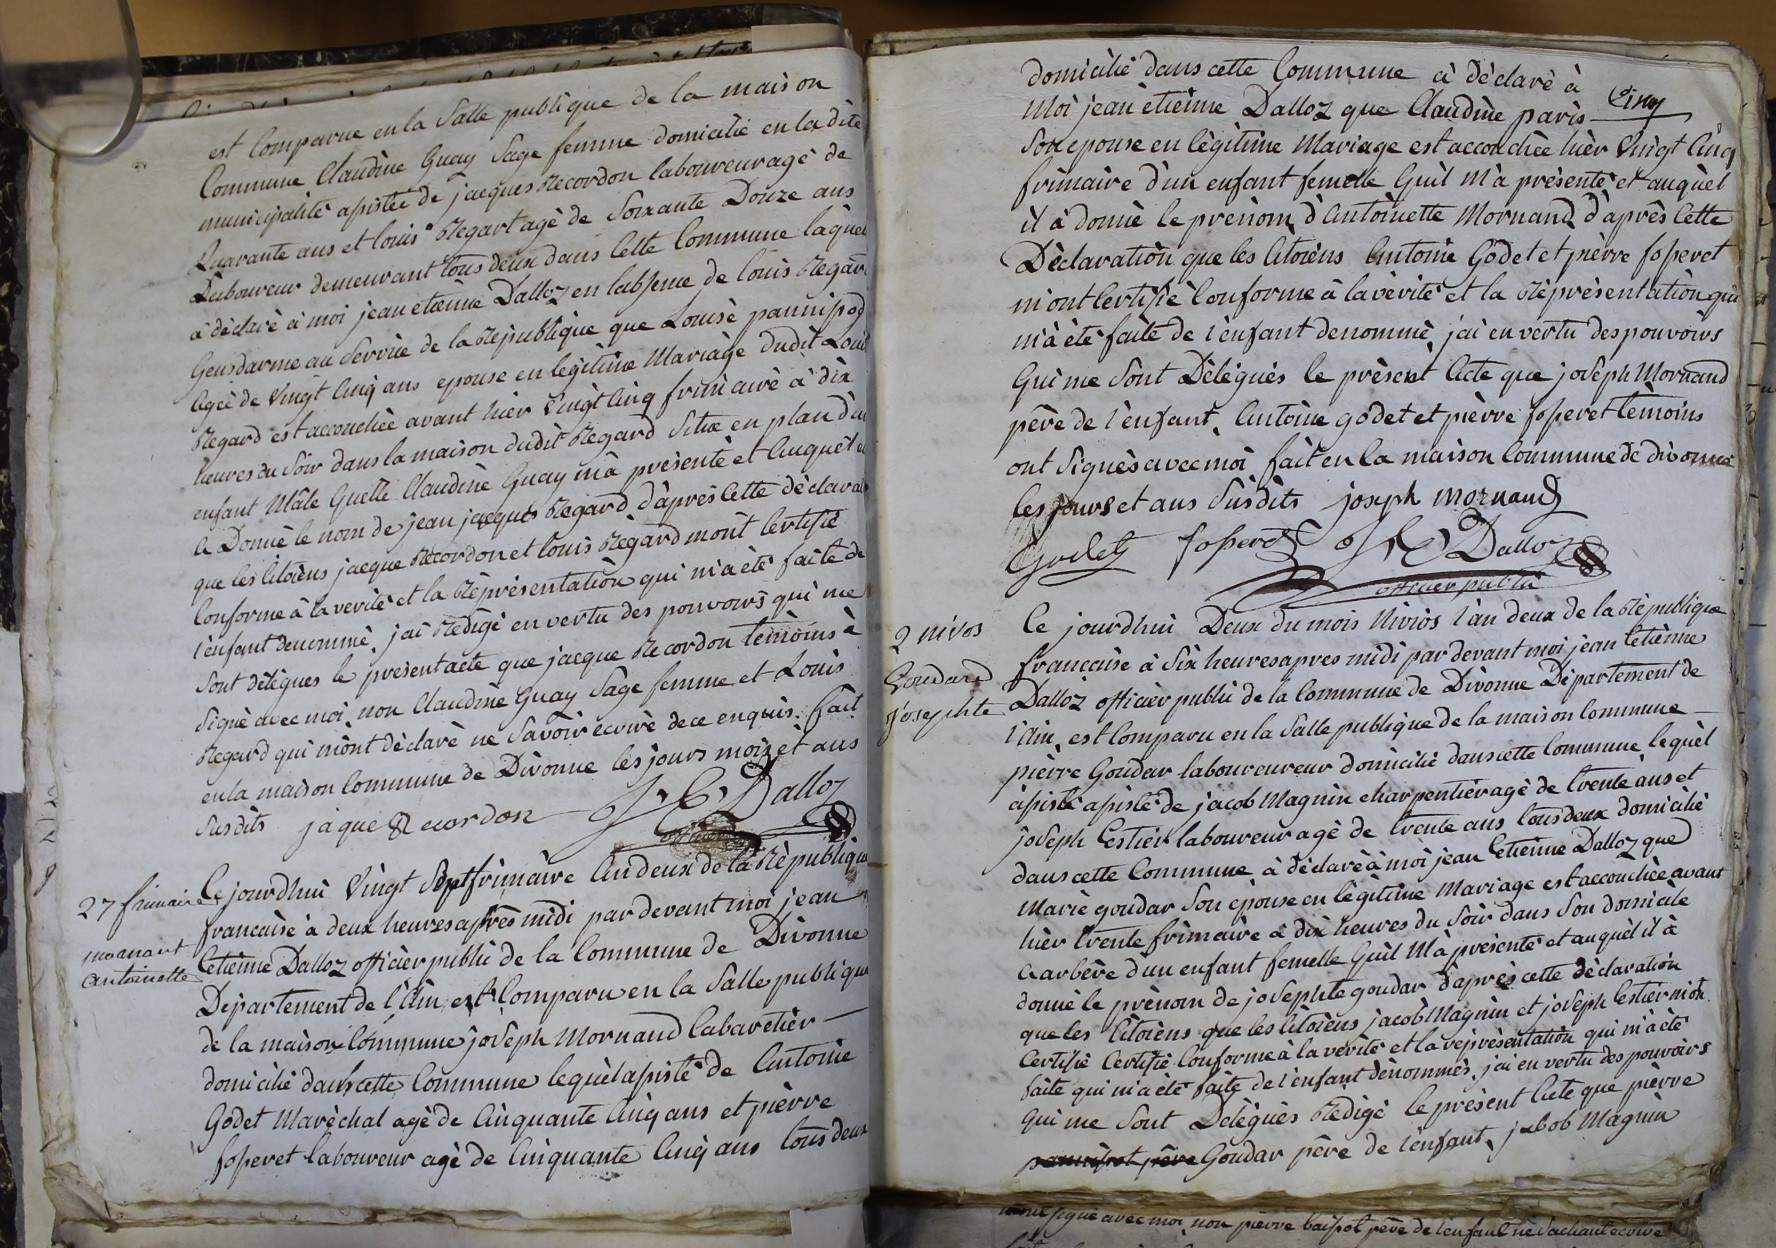 est Comparue en la Salle publique de la maison
Commune Claudine Guay Sage femme domicilié en la dite
municipalité assistée de jacques Recordon laboureur agé de
Quarante ans et louis Regart agé de Soixante Douze ans
Laboureur demeurant tous deux dans Cette Commune laquel
à déclaré à moi jean etiènne Dalloz en labsence de louis Regar
Gensdarme au Service de la République que Louise
agée de Vingt Cinq ans epouse en legitime Mariage dudit Loui
Regard est accouchée avant hier Vingt Cinq frimaire à dix
heures du Soir dans la maison dudit Regard Situe en plan d'un
enfant Mâle Quelle Claudine Guay m'à présenté et Auquel
a Donné le nom de jean jacques Regard d'après Cette déclara
que les Citoiens jacque Recordon et louis Regard m'ont Certifié
Conforme à la verité et la Réprésentation qui m'à été faite de
l'enfant denommé, jai Rédigé en vertu des pouvoirs qui me
Sont délégues le présent acte que jacque Recordon temoins à
Signé avec moi non Claudine Guay Sage femme et Louis
Regard qui m'ont déclaré ne Savoir écrire de ce enquis. fait
en la maison Commune de Divonne les jours mois et ans
Susdits jaque Recordon J. E. Dalloz
27 frimaire
mornant
antoinette
Ce jourdhui Vingt Sept frimaire L'an deux de la Républiqu
française à deux heures après midi par devant moi jean
Etiènne Dalloz officier public de la Commune de Divonne
Département de l'Ain est Comparu en la Salle publique
de la maison Commune joseph Mornand Cabaretier
domicilié dans cette Commune lequel assisté de Antoine
Godet Maréchal agé de Cinquante Cinq ans et pierre
fosseret laboureur agé de Cinquante Cinq ans tous deux
domicilié dans cette Commune à déclaré à
Moi jean étiènne Dalloz que Claudine paris
Son epouse en légitime Mariage est accouchée hièr Vingt Cinq
frimaire d'un enfant femelle Quil M'à présenté et auquel
il à donné le prénom d'Antoinette Mornand d'après Cette
Déclaration que les Citoiens Antoine Godet et pièrre fosseret
m'ont Certifié Conforme à la vérité et la Réprésentation qui
m'à été faite de l'enfant denommé, jai en vertu des pouvoirs
Qui me Sont Délégués le présent Acte que joseph Mornand
père de l'enfant, Antoine godet et pièrre fosseret témoins
ont Signés avec moi fait en la maison Commune de divonne
Les jours et ans Susdits joseph mornand
Godet fosseret J. E. Dalloz
officier public
2 nivos
Goudard
josephte
Ce jourdhui Deux du mois Nivios l'an deux de la République
française à Six heures apres midi par devant moi jean Etiènne
Dalloz officièr public de la Commune de Divonne Département de
l'Ain, est Comparu en la Salle publique de la maison Commune
pièrre Goudar laboureureur domicilié dans cette Commune lequel
àssisté assisté de jacob Magnin charpentièr agé de trente ans et
joseph Lestier laboureur agé de trente ans tous deux domicilié
dans cette Commune à déclaré à moi jean Etiènne Dalloz que
Marie goudar Son épouse en légitime Mariage est accouchée avant
hièr trente frimaire à dix heures du Soir dans Son domicile
à arbère d'un enfant femelle Quil M'à présenté et auquel il à
donné le prénom de josephte goudar d'après cette déclaration
que les Citoiens que les Citoiens jacob Magnin et joseph Lestièr m'ont
Certifié Certifié Conforme à la vérité et la réprésentation qui m'à été
faite qui m'a été faite de l'enfant dénommés, jai en vertu des pouvoirs
Qui me Sont Délégués Rédigé le présent Acte que pièrre
Goudar père de l'enfant, jacob Magnin
signé avec moi non pierre père de l'enfant ne sachant écrire